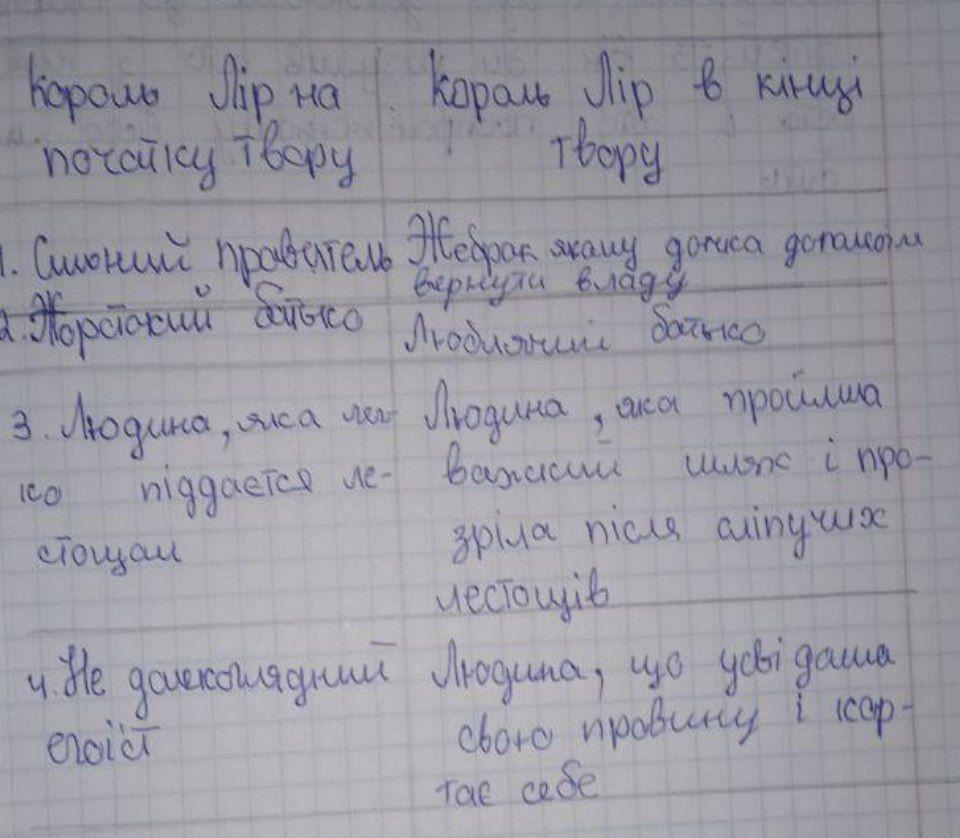 Король Лір на
початку твору
Король Лір в кінці
твору
1. Сильний правитель
Жебрак якому дочка допомогла
вернути владу
2. Жорстокий батько
Люблячий батько
3. Людина, яка лег-
ко піддається ле-
стощам
Людина, яка пройшла
важкий шлях і про-
зріла після сліпучих
лестощів
4. Не далекоглядний
егоїст
Людина, що усвідомила
свою провину і кар-
тає себе